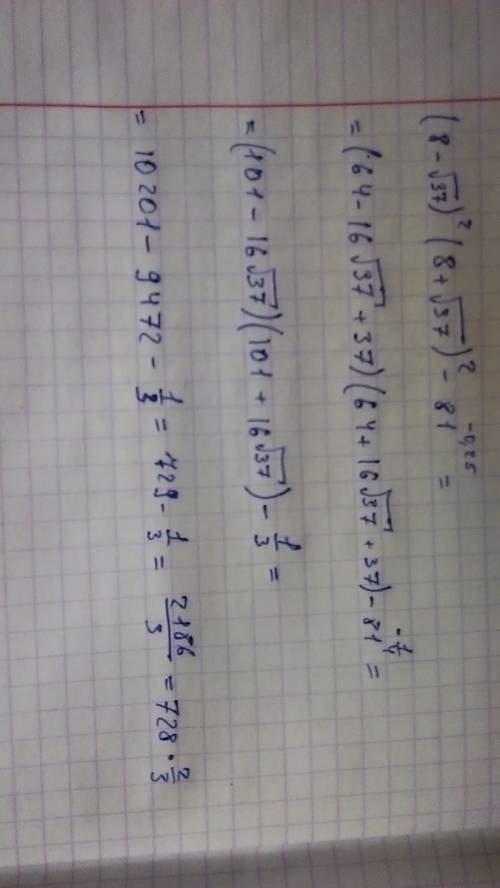 (8-√37)² (8+√37)² - 81^(-0,25) =
= (64-16√37+37)(64+16√37+37) - 81^(-1/4) =
= (101-16√37)(101+16√37) - 1/3 =
= 10201-9472-1/3 = 729-1/3 = 2186/3 = 728·2/3